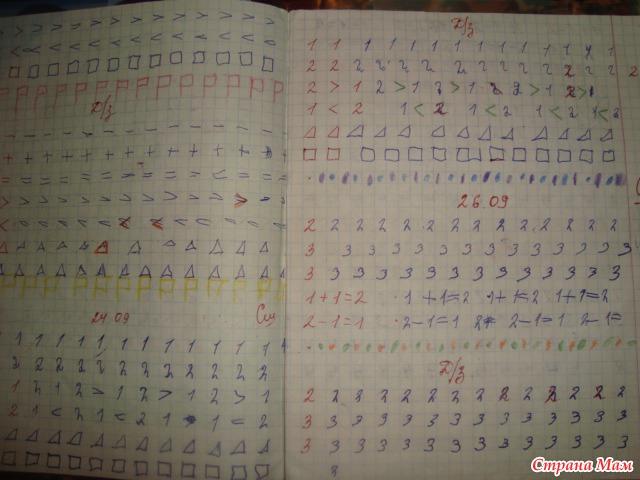 > > > > > > > > > > > > >
< < < < < < < < < < < <
Д/з
- - - - - - - - - - - - -
+ + + + + + + + + + + + +
= = = = = = = = = = = = =
> > > > > > > > > > > > >
24.09
См
1 1 1 1 1 1 1 1 1 1 1 1 1
2 2 2 2 2 2 2 2 2 2 2 2
1 2 1 2 > 1 2 > 1 2 > 1
2 1 < 2 1 < 2 1 1 < 2
Д/з
1 1 1 1 1 1 1 1 1 1 1 1 1
2 2 2 2 2 2 2 2 2 2 2 2 2
2 > 1 2 > 1 2 > 1 2 > 1 2 > 1
1 < 2 1 < 2 1 < 2 1 < 2 1 < 2
26.09
2 2 2 2 2 2 2 2 2 2 2 2 2
3 3 3 3 3 3 3 3 3 3 3 3 3 3
3 3 3 3 3 3 3 3 3 3 3 3 3
1+1=2 1+1=2 1+1=2 1+1=2
2-1=1 2-1=1 2 2-1=1 2-1=
Д/з
2 2 2 2 2 2 2 2 2 2 2 2 2
3 3 3 3 3 3 3 3 3 3 3 3 3
3 3 3 3 3 3 3 3 3 3 3 3 3
Страна Мам